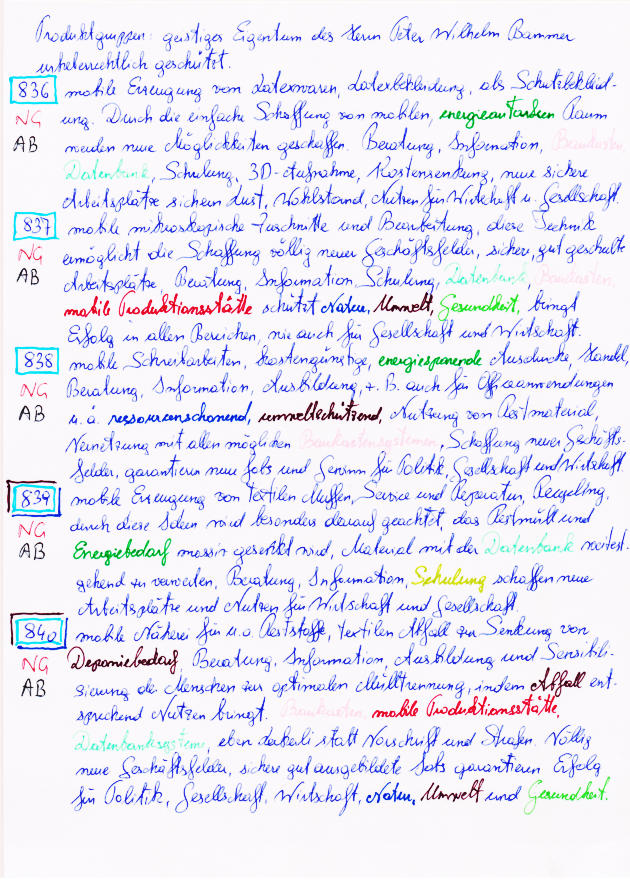 Produktgruppen: geistiges Eigentum des Herrn Peter Wilhelm Bammer
urheberrechtlich geschützt.
836 mobile Erzeugung von Latexwaren, Latexbekleidung, als Schutzbekleid-
NG ung. Durch die einfache Schaffung von mobilen, energieautarken Raum
AB werden neue Möglichkeiten geschaffen. Beratung, Information, Baukasten,
Datenbank, Schulung, 3D-Aufnahme, Kostensenkung, neue sichere
Arbeitsplätze sichern Lust, Wohlstand, Nutzen für Wirtschaft u. Gesellschaft.
837 mobile mikroskopische Zuschnitte und Bearbeitung, diese Technik
NG ermöglicht die Schaffung völlig neuer Geschäftsfelder, sichere, gut geschulte
AB Arbeitsplätze, Beratung, Information, Schulung, Datenbank, Baukasten,
mobile Produktionsstätte schützt Natur, Umwelt, Gesundheit, bringt
Erfolg in allen Bereichen, wie auch für Gesellschaft und Wirtschaft.
838 mobile Schreibarbeiten, kostengünstige, energiesparende Ausdrucke, Handel,
NG Beratung, Information, Ausbildung, z. B. auch für Officeanwendungen
AB u. ä. ressourcenschonend, umweltschützend, Nutzung von Restmaterial,
Vernetzung mit allen möglichen Baukastensystemen, Schaffung neuer Geschäfts-
felder, garantieren neue Jobs und Gewinn für Politik, Gesellschaft und Wirtschaft.
839 mobile Erzeugung von textilen Muffen, Service und Reparatur, Recycling,
NG durch diese Ideen wird besonders darauf geachtet, das Restmüll und
AB Energiebedarf massiv gesenkt wird, Material mit der Datenbank weitest-
gehend zu verwerten, Beratung, Information, Schulung schaffen neue
Arbeitsplätze und Nutzen für Wirtschaft und Gesellschaft.
840 mobile Näherei für u. a. Reststoffe, textilen Abfall zur Senkung von
NG Deponiebedarf, Beratung, Information, Ausbildung und Sensibili-
AB sierung der Menschen zur optimalen Mülltrennung, indem Abfall ent-
sprechend Nutzen bringt. Baukasten, mobile Produktionsstätte,
Datenbanksysteme, eben statt Vorschrift und Strafen. Völlig
neue Geschäftsfelder, sichere gut ausgebildete Jobs garantieren Erfolg
für Politik, Gesellschaft, Wirtschaft, Natur, Umwelt und Gesundheit.